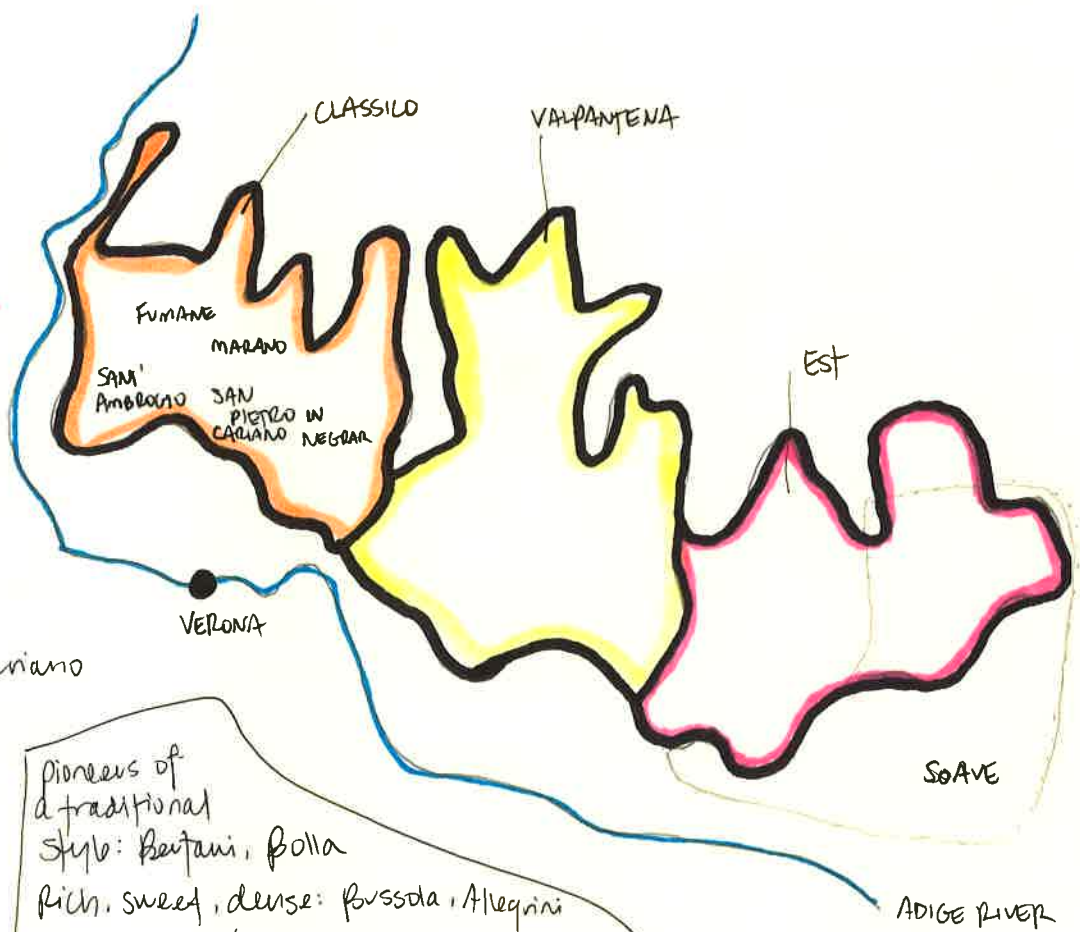 CLASSICO
VALPANTENA
FUMANE
MARANO
EST
SANT'
AMBROGIO
SAN
PIETRO IN
CARIANO
NEGRAR
VERONA
riano
SOAVE
pioneers of
a traditional
style: Bertani, Bolla
Rich, sweet, dense: Bussola, Allegrini
ADIGE RIVER